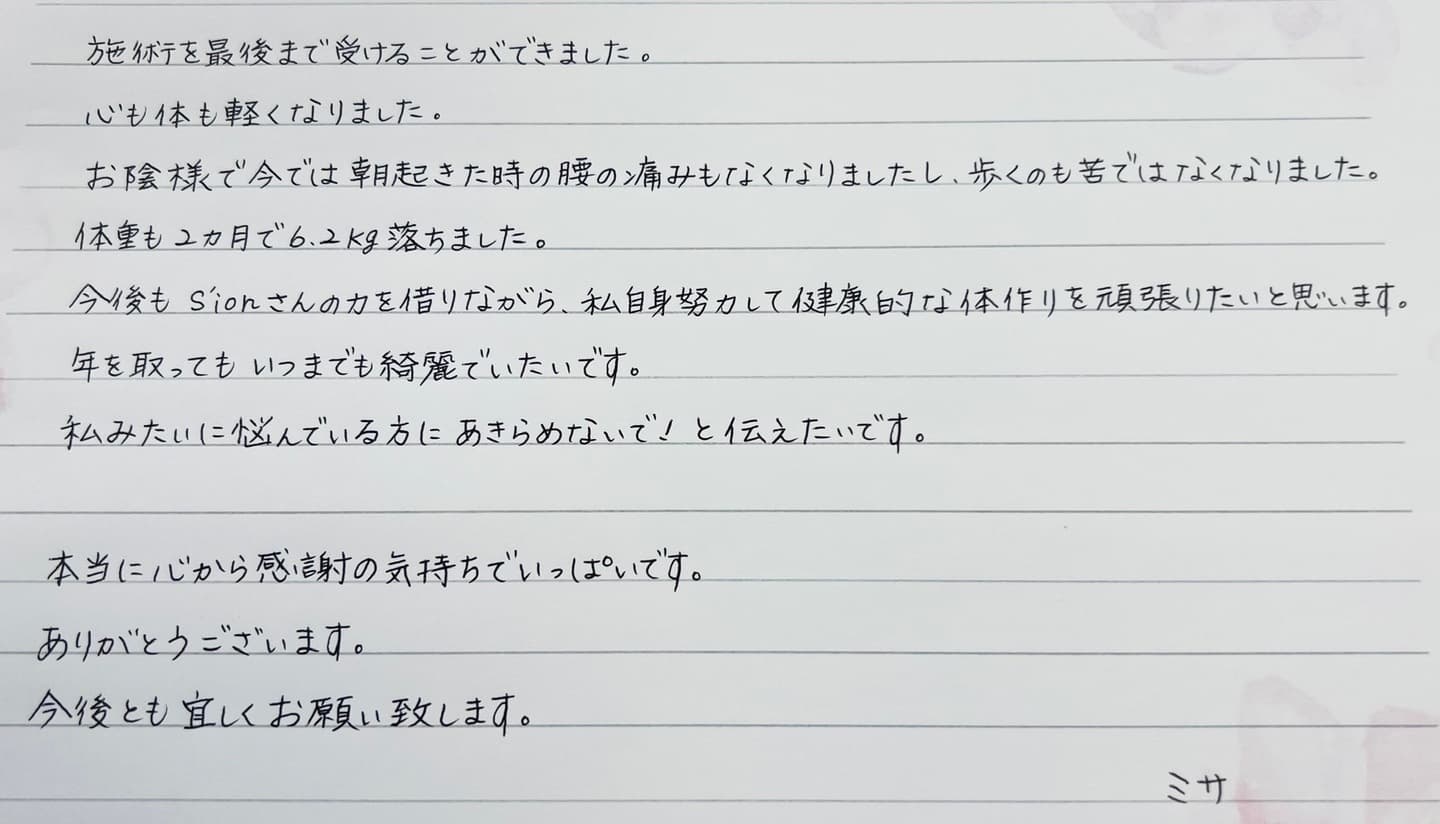 施術を最後まで受けることができました。
心も体も軽くなりました。
お陰様で今では朝起きた時の腰の痛みもなくなりましたし、歩くのも苦ではなくなりました。
体重も2カ月で6.2kg落ちました。
今後もS'ionさんの力を借りながら、私自身努力して健康的な体作りを頑張りたいと思います。
年を取ってもいつまでも綺麗でいたいです。
私みたいに悩んでいる方にあきらめないで!と伝えたいです。
本当に心から感謝の気持ちでいっぱいです。
ありがとうございます。
今後とも宜しくお願い致します。
ミサ